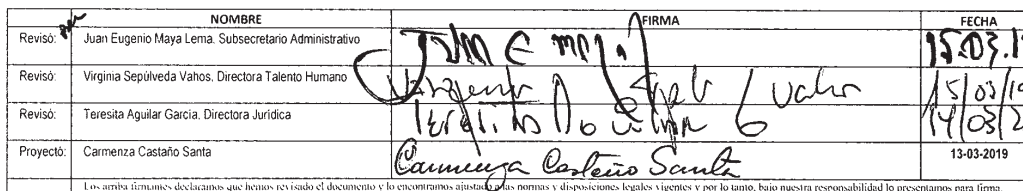 NOMBRE FIRMA FECHA
Revisó: Juan Eugenio Maya Lema. Subsecretario Administrativo 15.03.1
Revisó: Virginia Sepúlveda Vahos. Directora Talento Humano 15/03/19
Revisó: Teresita Aguilar García. Directora Jurídica 14/03/2
Proyectó: Carmenza Castaño Santa Carmenza Castaño Santa 13-03-2019
Los arriba firmantes declaramos que hemos revisado el documento y lo encontramos ajustado a las normas y disposiciones legales vigentes y por lo tanto, bajo nuestra responsabilidad lo presentamos para firma.